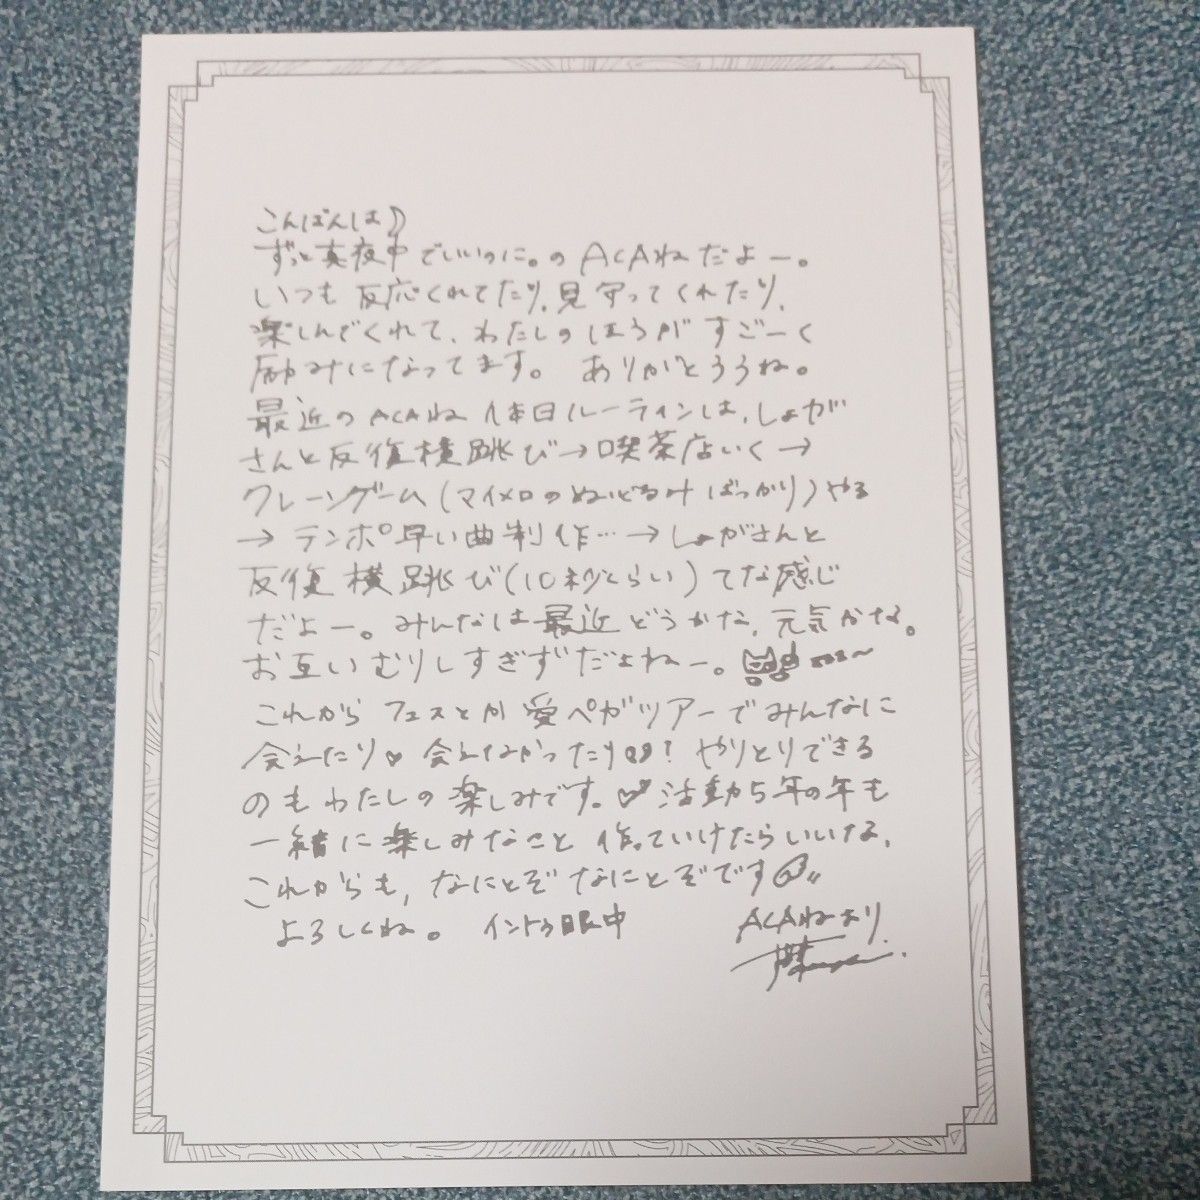 こんばんは
ずっと真夜中でいいのに。の ACAねだよー。
いつも反応くれてたり、見守ってくれたり、
楽しんでくれて、わたしのほうがすごーく
励みになってます。 ありがとううね。
最近のACAね 休日ルーティンは、しょうが
さんと反復横跳び→喫茶店いく→
クレーンゲーム(マイメロのぬいぐるみばっかり)やる
→ テンポ早い曲制作…→しょうがさんと
反復横跳び(10秒くらい)てな感じ
だよー。みんなは最近どうかな、元気かな。
お互いむりしすぎずだよねー。
これから フェスとか 愛ペガツアーでみんなに
会えたり♡ 会えなかったり!やりとりできる
のもわたしの楽しみです。活動5年の年も
一緒に楽しみなこと 作っていけたらいいな、
これからも、なにとぞなにとぞです
よろしくね。
ACAねより